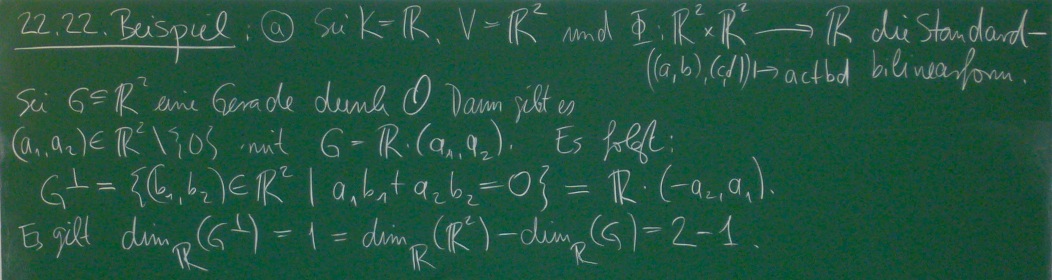 22.22. Beispiel: ⓐ Sei K=ℝ, V=ℝ² und Φ: ℝ²×ℝ² ⟶ ℝ die Standard-
((a,b),(c,d)) ↦ ac+bd bilinearform.
Sei G⊆ℝ² eine Gerade durch 0 Dann gibt es
(a₁,a₂)∈ℝ²\{0} mit G=ℝ·(a₁,a₂). Es folgt:
G^⊥ = {(b₁,b₂)∈ℝ² | a₁b₁+a₂b₂=0} = ℝ·(-a₂,a₁).
Es gilt dim_ℝ(G^⊥) = 1 = dim_ℝ(ℝ²)-dim_ℝ(G) = 2-1.